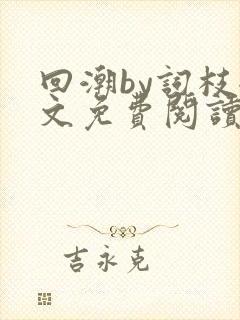 回潮by词枝
文免費閱讀
吉永克